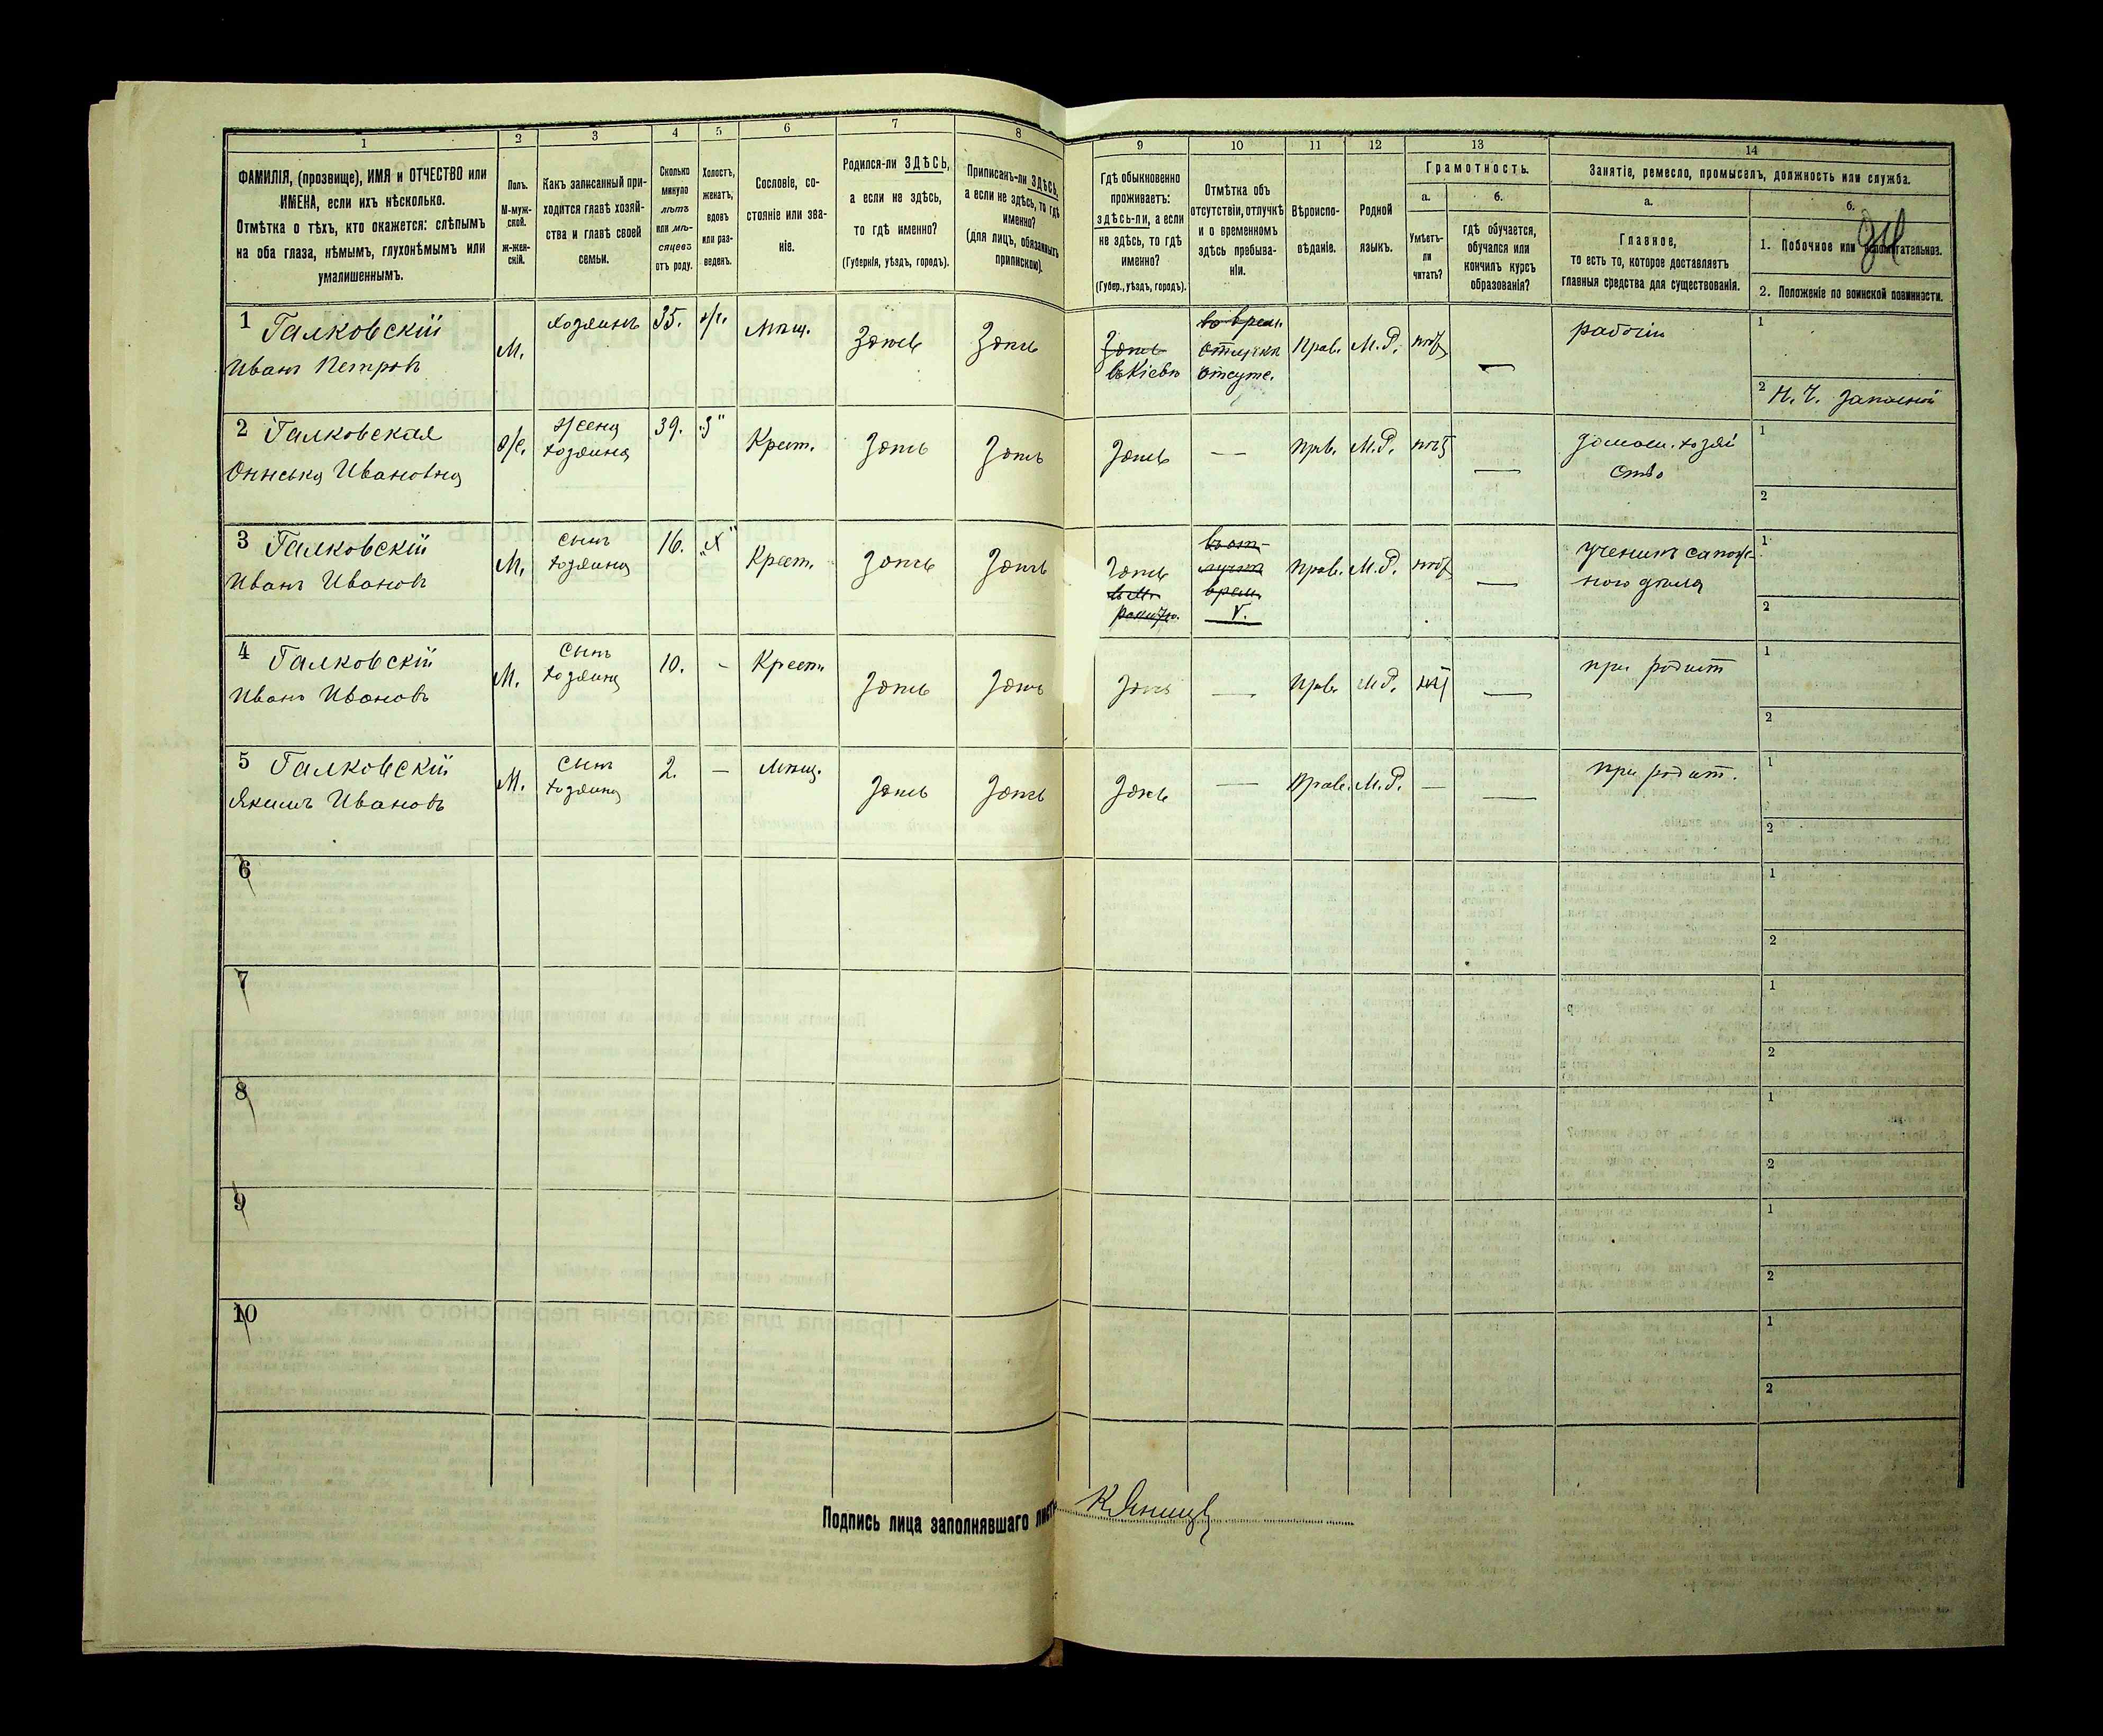 1 2 3 4 5 6 7 8 9 10 11 12 13 14
ФАМИЛІЯ, (прозвище), ИМЯ и ОТЧЕСТВО или
ИМЕНА, если ихъ нѣсколько.
Отмѣтка о тѣхъ, кто окажется: слѣпымъ
на оба глаза, нѣмымъ, глухонѣмымъ или
умалишеннымъ.
Полъ.
М-муж-
ской.
ж-жен-
скій.
Какъ записанный при-
ходится главѣ хозяй-
ства и главѣ своей
семьи.
Сколько
минуло
лѣтъ
или мѣ-
сяцевъ
отъ роду.
Холостъ,
женатъ,
вдовъ
или раз-
веденъ.
Сословіе, со-
стояніе или зва-
ніе.
Родился-ли ЗДѢСЬ,
а если не здѣсь,
то гдѣ именно?
(Губернія, уѣздъ, городъ).
Приписанъ-ли ЗДѢСЬ,
а если не здѣсь, то гдѣ
именно?
(для лицъ, обязанныхъ
припискою).
Гдѣ обыкновенно
проживаетъ:
здѣсь-ли, а если
не здѣсь, то гдѣ
именно?
(Губер., уѣздъ, городъ).
Отмѣтка объ
отсутствіи, отлучкѣ
и о временномъ
здѣсь пребыва-
ніи.
Вѣроиспо-
вѣданіе.
Родной
языкъ.
Грамотность.
а.
Умѣетъ-
ли
читать?
б.
гдѣ обучается,
обучался или
кончилъ курсъ
образованія?
Занятіе, ремесло, промыселъ, должность или служба.
а.
Главное,
то есть то, которое доставляетъ
главныя средства для существованія.
б.
1. Побочное или вспомогательное.
2. Положеніе по воинской повинности.
1 Галковскій
Иванъ Петровъ
М.
хозяинъ
35.
ж.
Мѣщ.
Здѣсь
Здѣсь
Здѣсь
въ Кіевѣ
во врем.
отлучкѣ
отсутс.
Прав.
М.Р.
—
рабочій
1
2 Н. Ч. запасной
2 Галковская
Ивановна
ж.
жена
хозяина
39.
"З"
Крест.
Здѣсь
Здѣсь
Здѣсь
—
Прав.
М.Р.
—
домаш. хозяй
ство
1
2
3 Галковскій
Иванъ Ивановъ
М.
сынъ
хозяина
16.
"Х"
Крест.
Здѣсь
Здѣсь
Здѣсь
врем.
Прав.
М.Р.
—
ученикъ сапож-
ного дѣла
1
2
4 Галковскій
Иванъ Ивановъ
М.
сынъ
хозяина
10.
-
Крест.
Здѣсь
Здѣсь
Здѣсь
—
Прав.
М.Р.
—
при родит
1
2
5 Галковскій
Якимъ Ивановъ
М.
сынъ
хозяина
2.
—
Мѣщ.
Здѣсь
Здѣсь
Здѣсь
—
Прав.
М.Р.
—
—
при родит.
1
2
6
1
2
7
1
2
8
1
2
9
1
2
10
1
2
Подпись лица заполнявшаго листъ